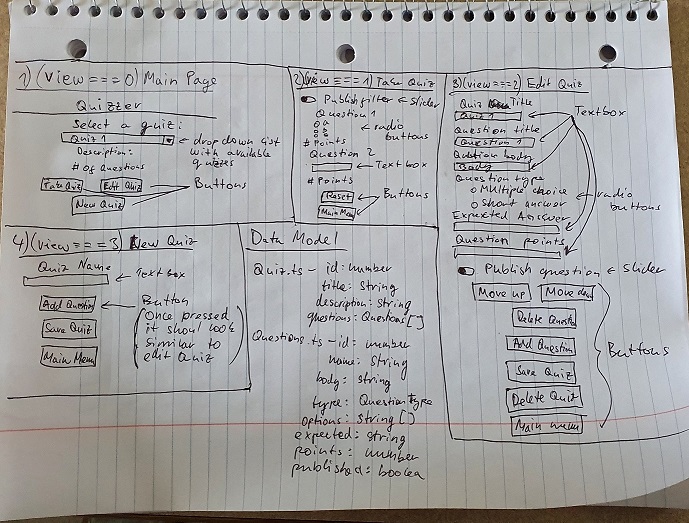 1) (view === 0) Main Page
Quizzer
Select a quiz:
Quiz 1
drop down list
with available
quizzes
Description:
# of Questions
Take Quiz
Edit Quiz
New Quiz
Buttons
2) (view === 1) Take Quiz
Publish filter ← slider
Question 1
radio
buttons
# Points
Question 2
Text box
# Points
Reset
Main Menu
Buttons
3) (view === 2) Edit Quiz
Quiz Title
Quiz 1
Textbox
Question title
Question 1
Question body
Body
Question type
o Multiple choice
o Short answer
radio
buttons
Expected Answer
Question points
Publish question ← slider
Move up
Move down
Delete Question
Add Question
Save Quiz
Delete Quiz
Main menu
Buttons
4) (view === 3) New Quiz
Quiz Name
Text box
Add Question
Button
(Once pressed
it shoul look
similar to
edit Quiz)
Save Quiz
Main Menu
Data Model
Quiz.ts - id: number
title: String
description: String
questions: Questions[]
Questions.ts - id: number
name: String
body: string
type: Question type
options: String[]
expected: string
points: number
published: boolea